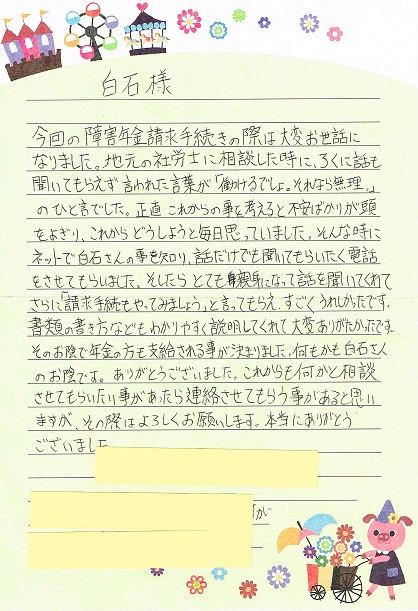 白石様
今回の障害年金請求手続きの際は大変お世話に
なりました。地元の社労士に相談した時に、ろくに話も
聞いてもらえず言われた言葉が「働けるでしょ。それなら無理。」
のひと言でした。正直これからの事を考えると不安ばかりが頭
をよぎり、これからどうしようと毎日思っていました。そんな時に
ネットで白石さんの事を知り、話だけでも聞いてもらいたく電話
をさせてもらいました。そしたらとても親身になって話を聞いてくれて
さらに「請求手続もやってみましょう」と言ってもらえ、すごくうれしかったです。
書類の書き方などもわかりやすく説明してくれて大変ありがたかったです。
そのお陰で年金の方も支給される事が決まりました。何もかも白石さん
のお陰です。ありがとうございました。これからも何かと相談
させてもらいたい事があったら連絡させてもらう事があると思い
ますが、その際はよろしくお願いします。本当にありがとう
ございました